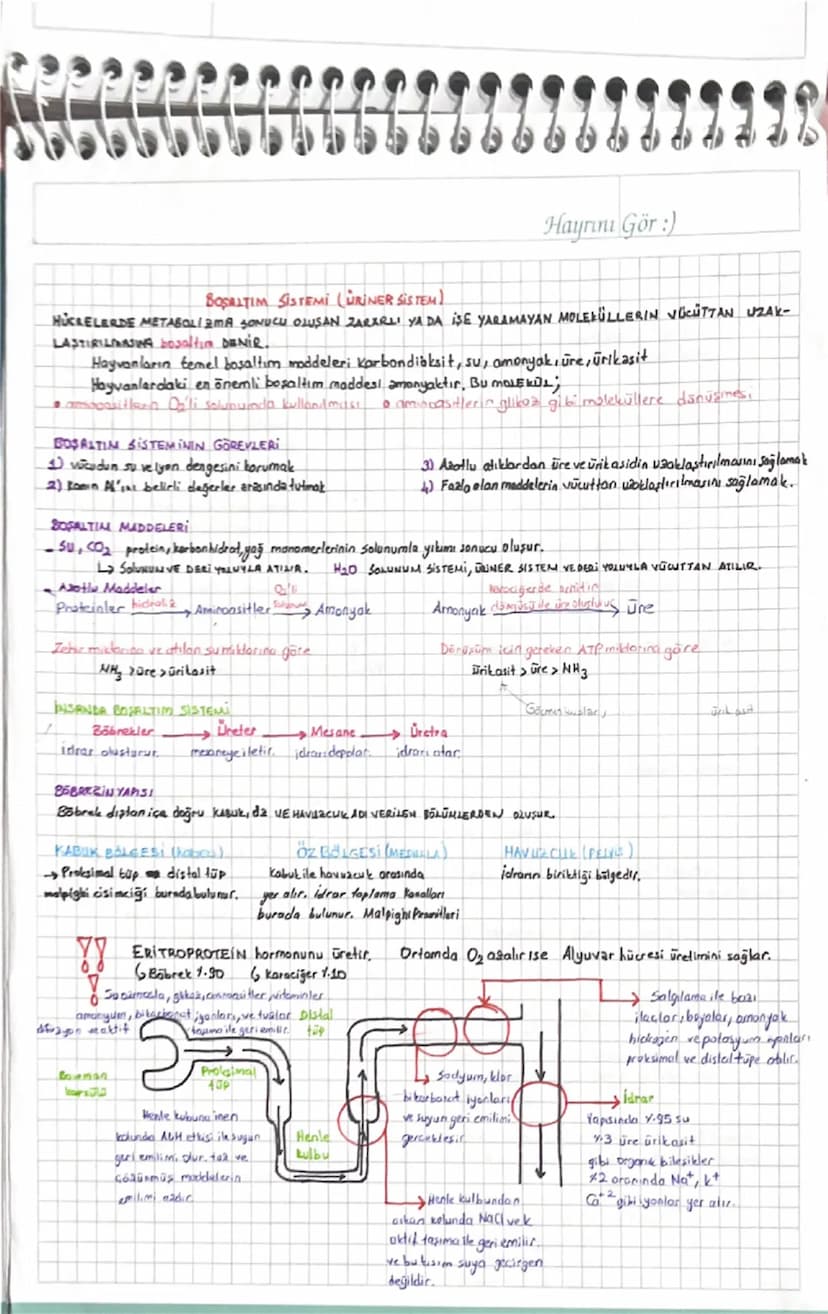 Hayrını Gör :)
BOŞALTIM SİSTEMİ (ÜRİNER SİSTEM)
HÜCRELERDE METABOLİZMA SONUCU OLUŞAN ZARARLI YA DA İŞE YARAMAYAN MOLEKÜLLERİN VÜCUTTAN UZAK-
LAŞTIRILMASINA boşaltım DENİR.
Hayvanların temel boşaltım maddeleri karbondioksit, su, amonyak, üre, ürikasit
Hayvanlardaki en önemli boşaltım maddesi amonyaktır. Bu molekül;
aminoasitlerin O₂'li solunumda kullanılması o aminoasitlerin glikoz gibi moleküllere dönüşmesi
BOŞALTIM SİSTEMİNİN GÖREVLERİ
1) vücudun su ve iyon dengesini korumak
3) Azotlu atıklardan üre ve ürikasidin uzaklaştırılmasını sağlamak
2) kanın PH'ını belirli değerler arasında tutmak
4) Fazla olan maddelerin vücuttan uzaklaştırılmasını sağlamak.
BOŞALTIM MADDELERİ
- SU, CO₂ protein, karbonhidrat, yağ monomerlerinin solunumla yıkımı sonucu oluşur.
↳ SOLUNUM VE DERİ YOLUYLA ATILIR. H₂O SOLUNUM SİSTEMİ, ÜRİNER SİSTEM VE DERİ YOLUYLA VÜCUTTAN ATILIR.
- Azotlu Maddeler
Proteinler hidroliz → Aminoasitler O₂'li Solunum → Amonyak
Amonyak karaciğerde ornitin döngüsü ile üre oluşturulur → Üre
Zehir miktarına ve atılan su miktarına göre
NH₃ > üre > ürikasit
Dönüşüm için gereken ATP miktarına göre
ürikasit > üre > NH₃
ürikasit
İNSANDA BOŞALTIM SİSTEMİ
Böbrekler → Üreter → Mesane → Üretra
idrar oluşturur. mesaneye iletir. idrarı depolar. idrarı atar.
BÖBREĞİN YAPISI
Böbrek dıştan içe doğru KABUK, öz VE HAVUZCUK ADI VERİLEN BÖLÜMLERDEN OLUŞUR.
KABUK BÖLGESİ (Korteks)
→ Proksimal tüp distal tüp
malpighi cisimciği burada bulunur.
ÖZ BÖLGESİ (MEDULLA)
Kabuk ile havuzcuk arasında
yer alır. idrar toplama kanalları
burada bulunur. Malpighi Piramitleri
HAVUZCUK (PELVIS)
idrarın biriktiği bölgedir.
ERİTROPROTEİN hormonunu üretir. Ortamda O₂ azalır ise Alyuvar hücresi üretimini sağlar.
↳ Böbrek %90 ↳ karaciğer %10
glikoz, aminoasitler, vitaminler
amonyum, bikarbonat iyonları, ve tuzlar
difüzyon ve aktif taşıma ile geri emilir.
Distal
tüp
Bowman
kapsülü
Proksimal
tüp
Henle kulbuna inen
kolunda ADH etkisi ile suyun
geri emilimi olur. tuz ve
çözünmüş maddelerin
emilimi azdır.
Henle
kulbu
Sodyum, klor
bikarbonat iyonları
ve suyun geri emilimi
gerçekleşir.
Henle kulbundan
çıkan kolunda NaCl
aktif taşıma ile geri emilir.
ve bu kısım suya geçirgen
değildir.
Salgılama ile bazı
ilaçlar, boyalar, amonyak
hidrojen ve potasyum iyonları
proksimal ve distal tüpe atılır.
İdrar
Yapısında %95 su
%3 üre ürikasit
gibi organik bileşikler
%2 oranında Na⁺, K⁺
Ca⁺² gibi iyonlar yer alır.